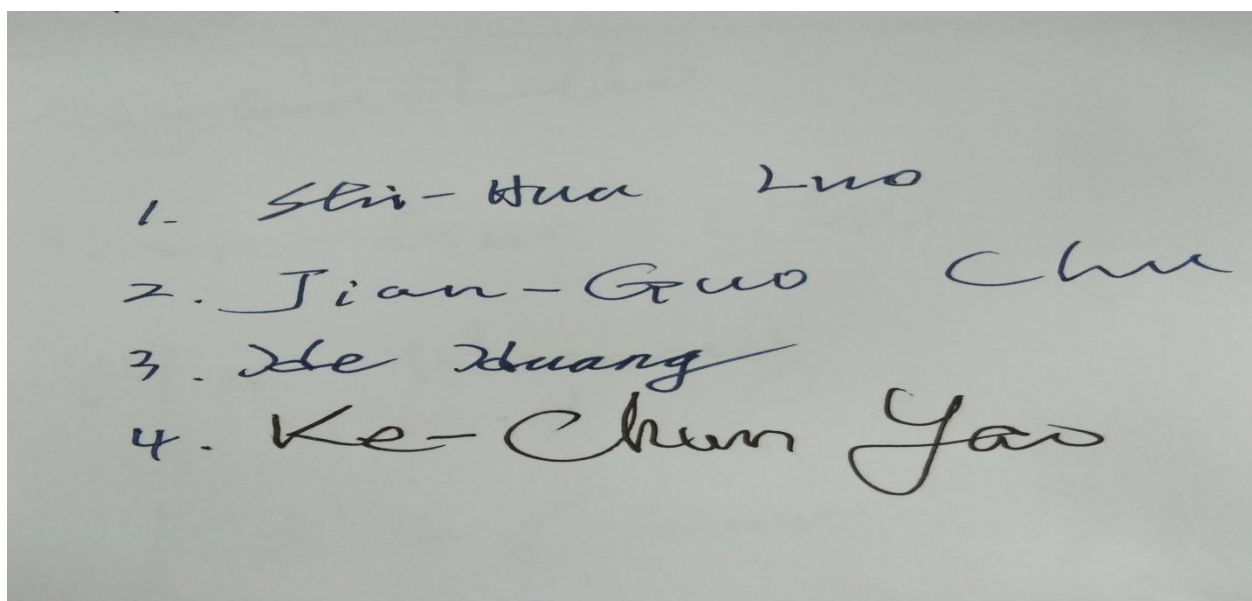 1. Shi-Hua Luo
2. Jian-Guo Chu
3. He Huang
4. Ke-Chun Yao